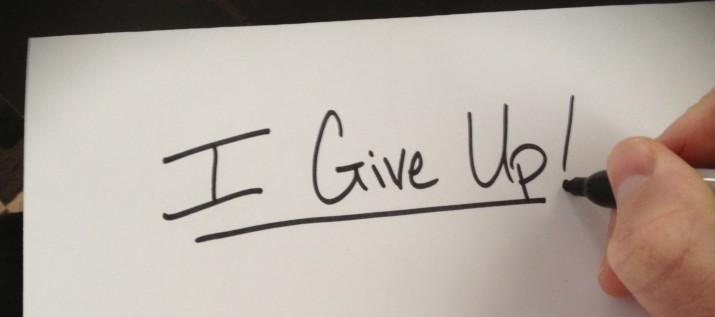 I Give Up!